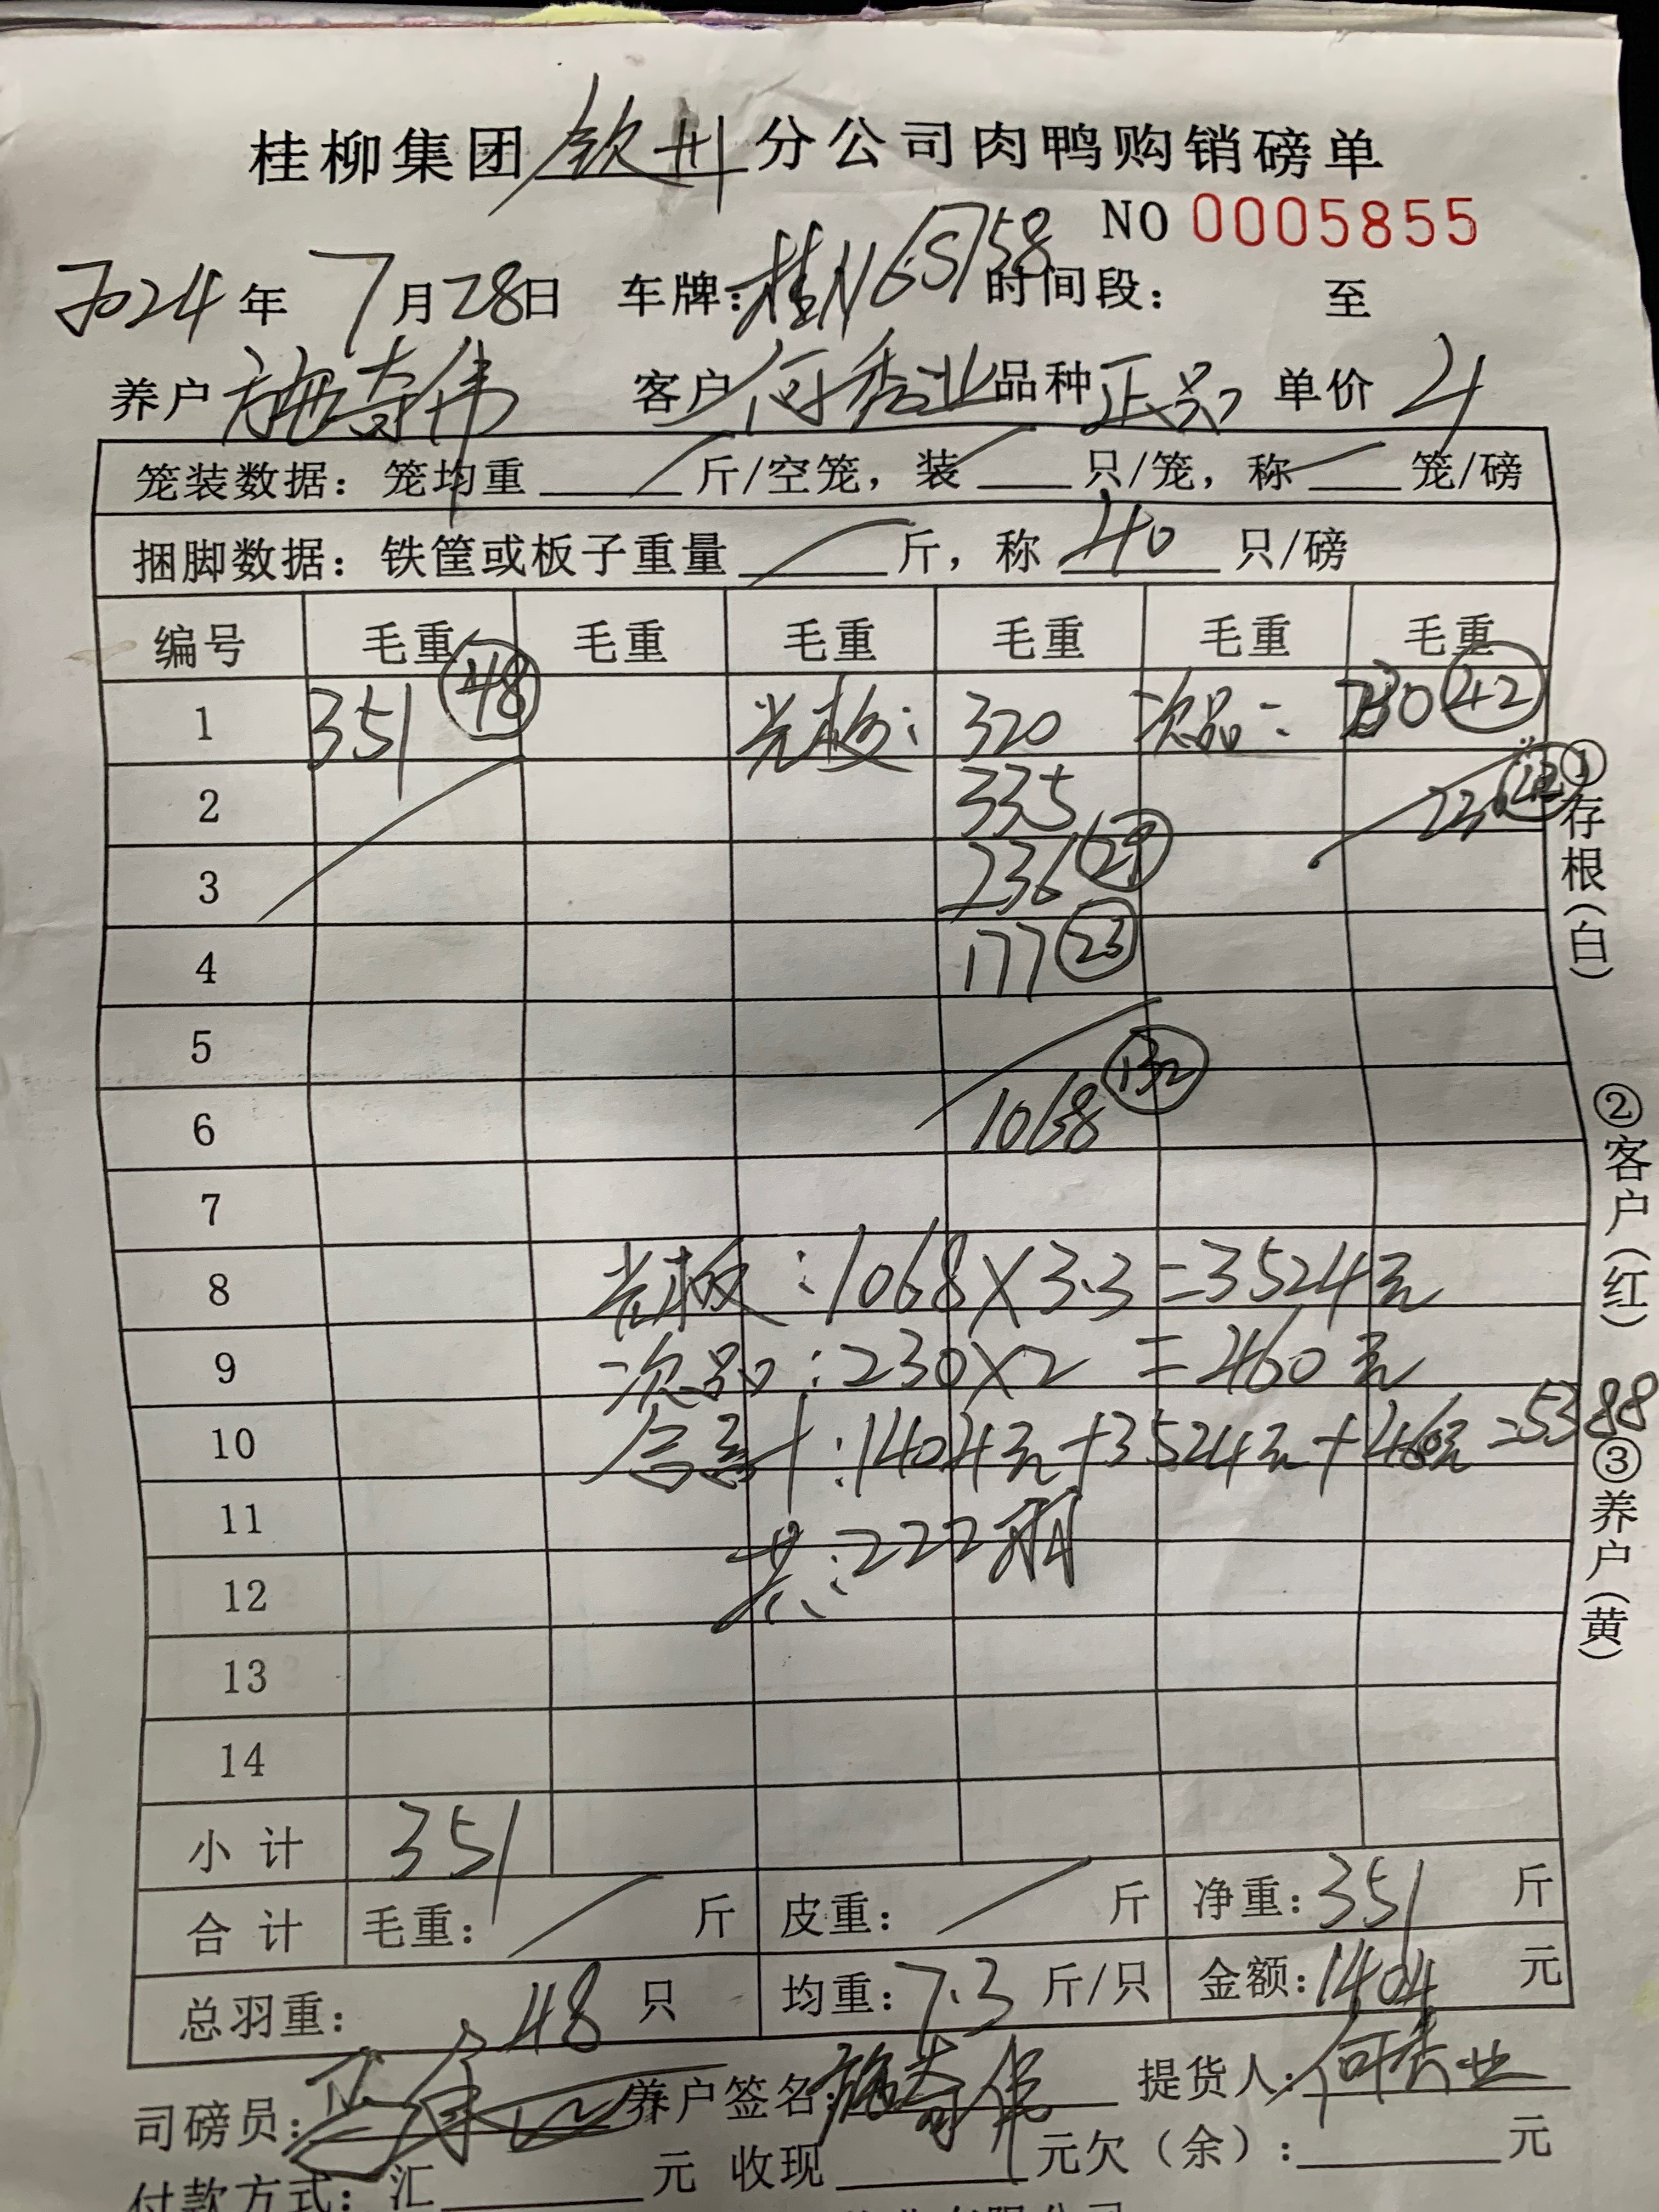 桂柳集团钦州分公司肉鸭购销磅单
NO 0005855
2024年7月28日 车牌:桂N6S758 时间段: 至
养户施奇伟 客户何秀业 品种正品 单价4
笼装数据：笼均重 斤/空笼，装 只/笼，称 笼/磅
捆脚数据：铁筐或板子重量 斤，称 40 只/磅
编号 毛重 毛重 毛重 毛重 毛重 毛重
1 351 48 光板: 320 次品: 230 42
2 335 230 42
3 236
4 177 23
5
6 1068 132
7
8 光板:1068×3.3=3524元
9 次品:230×2=460元
10 合计:1404元+3524元+460元=5388
11 共:222羽
12
13
14
小计 351
合计 毛重: 斤 皮重: 斤 净重:351 斤
总羽重: 48 只 均重:7.3 斤/只 金额:1404 元
司磅员: 养户签名:施奇伟 提货人:何秀业
付款方式：汇 元 收现 元欠（余）: 元
①存根(白)
②客户(红)
③养户(黄)